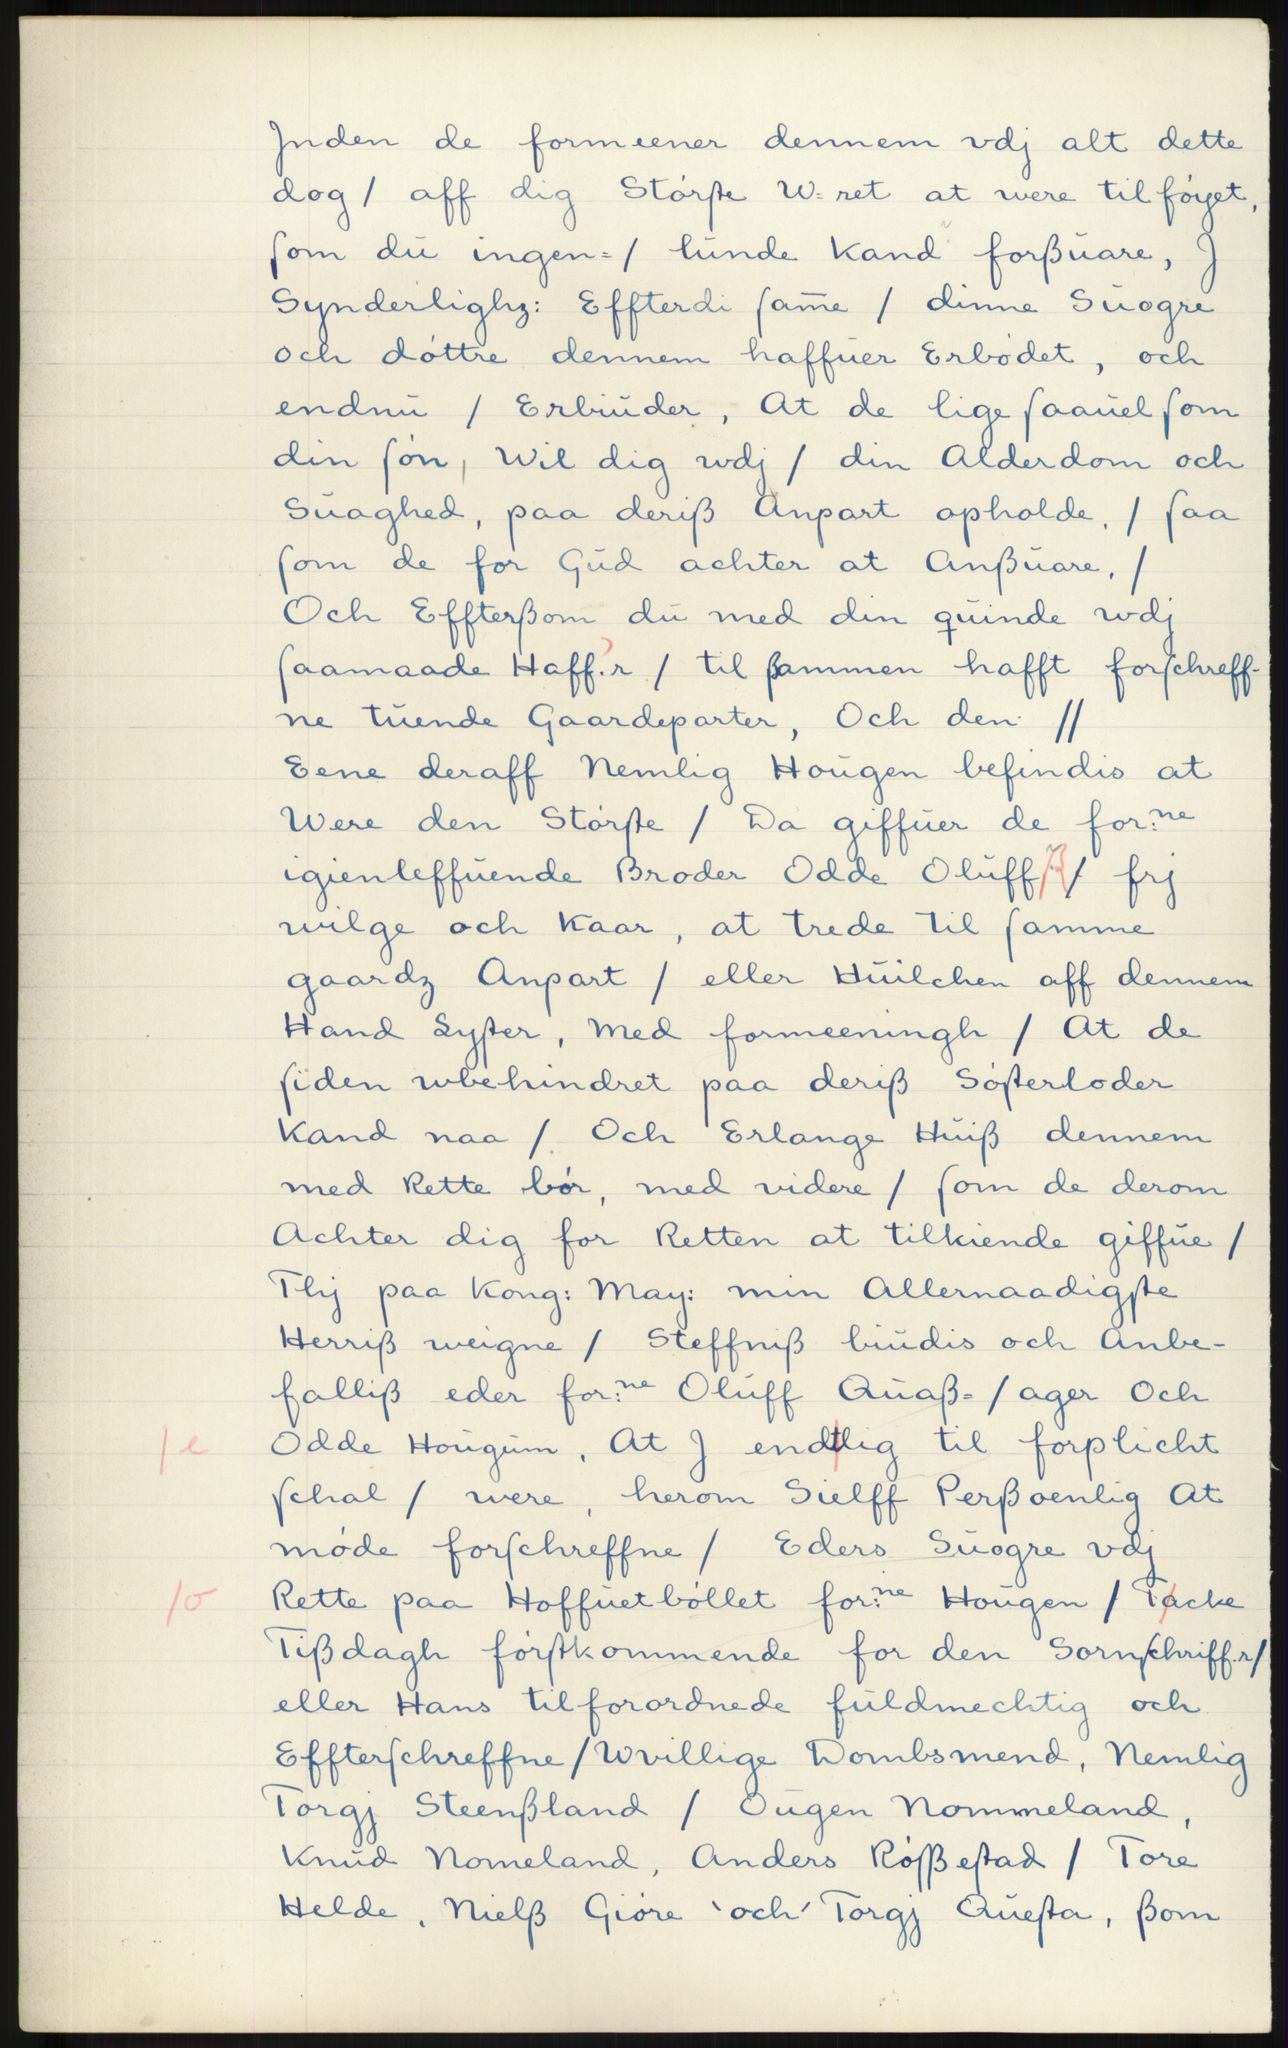 Jnden de formeener dennem vdj alt dette
dog / aff dig Størſte W=ret at were tilføyet,
ſom du ingen=/ lunde kand forßuare, J
Synderlighz: Effterdi ſam̅e / dinne Suogre
och døttre dennem haffuer Erbødet, och
endnu / Erbiuder, At de lige ſaauel ſom
din ſøn, Wil dig wdj / din Alderdom och
Suaghed, paa deriß Anpart opholde, / ſaa
ſom de for Gud achter at Anßuare, /
Och Effterßom du med din quinde wdj
ſaamaade Haff:r / til ßammen hafft forſchreff-
ne tuende Gaardeparter, Och den //
Eene deraff Nemlig Hougen befindis at
Were den Størſte / Da giffuer de for:ne
igienleffuende Broder Odde Oluffß / frj
wilge och Kaar, at trede til ſamme
gaardz Anpart / eller Huilchen aff dennem
Hand Lyſter, Med formeeningh / At de
ſiden wbehindret paa deriß Søſterloder
Kand naa / Och Erlange Huiß dennem
med Rette bør, med videre / ſom de derom
Achter dig for Retten at tilkiende giffue /
Thj paa Kong: May: min Allernaadigſte
Herriß weigne / Steffniß biudis och Anbe-
falliß eder for:ne Oluff Quaß=/ager Och
/e Odde Hougum, At J endtlig til forplicht
ſchal / were, herom Sielff Perßoenlig At
møde forſchreffne / Eders Suogre vdj
/o Rette paa Hoffuetbøllet for:ne Hougen / Tacke
Tißdagh førſtkommende for den Sornſchriff:r/
eller Hans tilforordnede fuldmechtig och
Effterſchreffne / Wvillige Dombsmend, Nemlig
Torgj Steenßland / Ougen Nommeland,
Knud Nomeland, Anders Røſßeſtad / Tore
Helde, Nielß Giøre 'och' Torgj Queſta, ßom